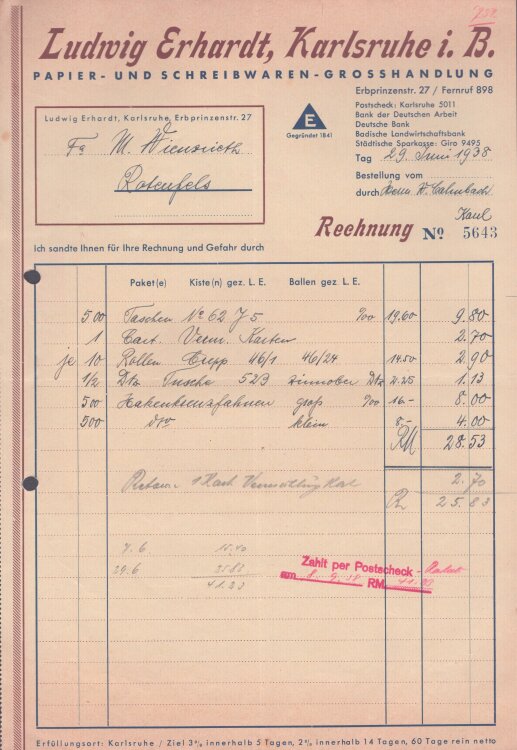 Ludwig Erhardt, Karlsruhe i. B.
PAPIER- UND SCHREIBWAREN-GROSSHANDLUNG
Erbprinzenstr. 27 / Fernruf 898
Postscheck: Karlsruhe 5011
Bank der Deutschen Arbeit
Deutsche Bank
Badische Landwirtschaftsbank
Städtische Sparkasse: Giro 9495
E
Gegründet 1841
Ludwig Erhardt, Karlsruhe, Erbprinzenstr. 27
Fa M.
Rotenfels
Tag 29. Juni 1938
Bestellung vom
durch Herrn W. Calmbach
Rechnung No 5643
Ich sandte Ihnen für Ihre Rechnung und Gefahr durch
Paket(e) Kiste(n) gez. L. E. Ballen gez. L. E.
500 Taschen No 62 J 5 %00 19.60 9.80
1 Cart. Verm. Karten 2.70
je 10 Rollen Crepp 46/1 46/24 14.50 2.90
1/2 Dtz Tusche 523 zinnober Dtz 2.25 1.13
500 Hakenkreuzfahnen groß %00 16.- 8.00
500 dto klein 8.- 4.00
RM 28.53
1 Kart. 2.70
25.83
7.6 15.40
29.6 25.83
41.23
Zahlt per Postscheck
am 8. 9. 38 RM
Erfüllungsort: Karlsruhe / Ziel 3% innerhalb 5 Tagen, 2% innerhalb 14 Tagen, 60 Tage rein netto